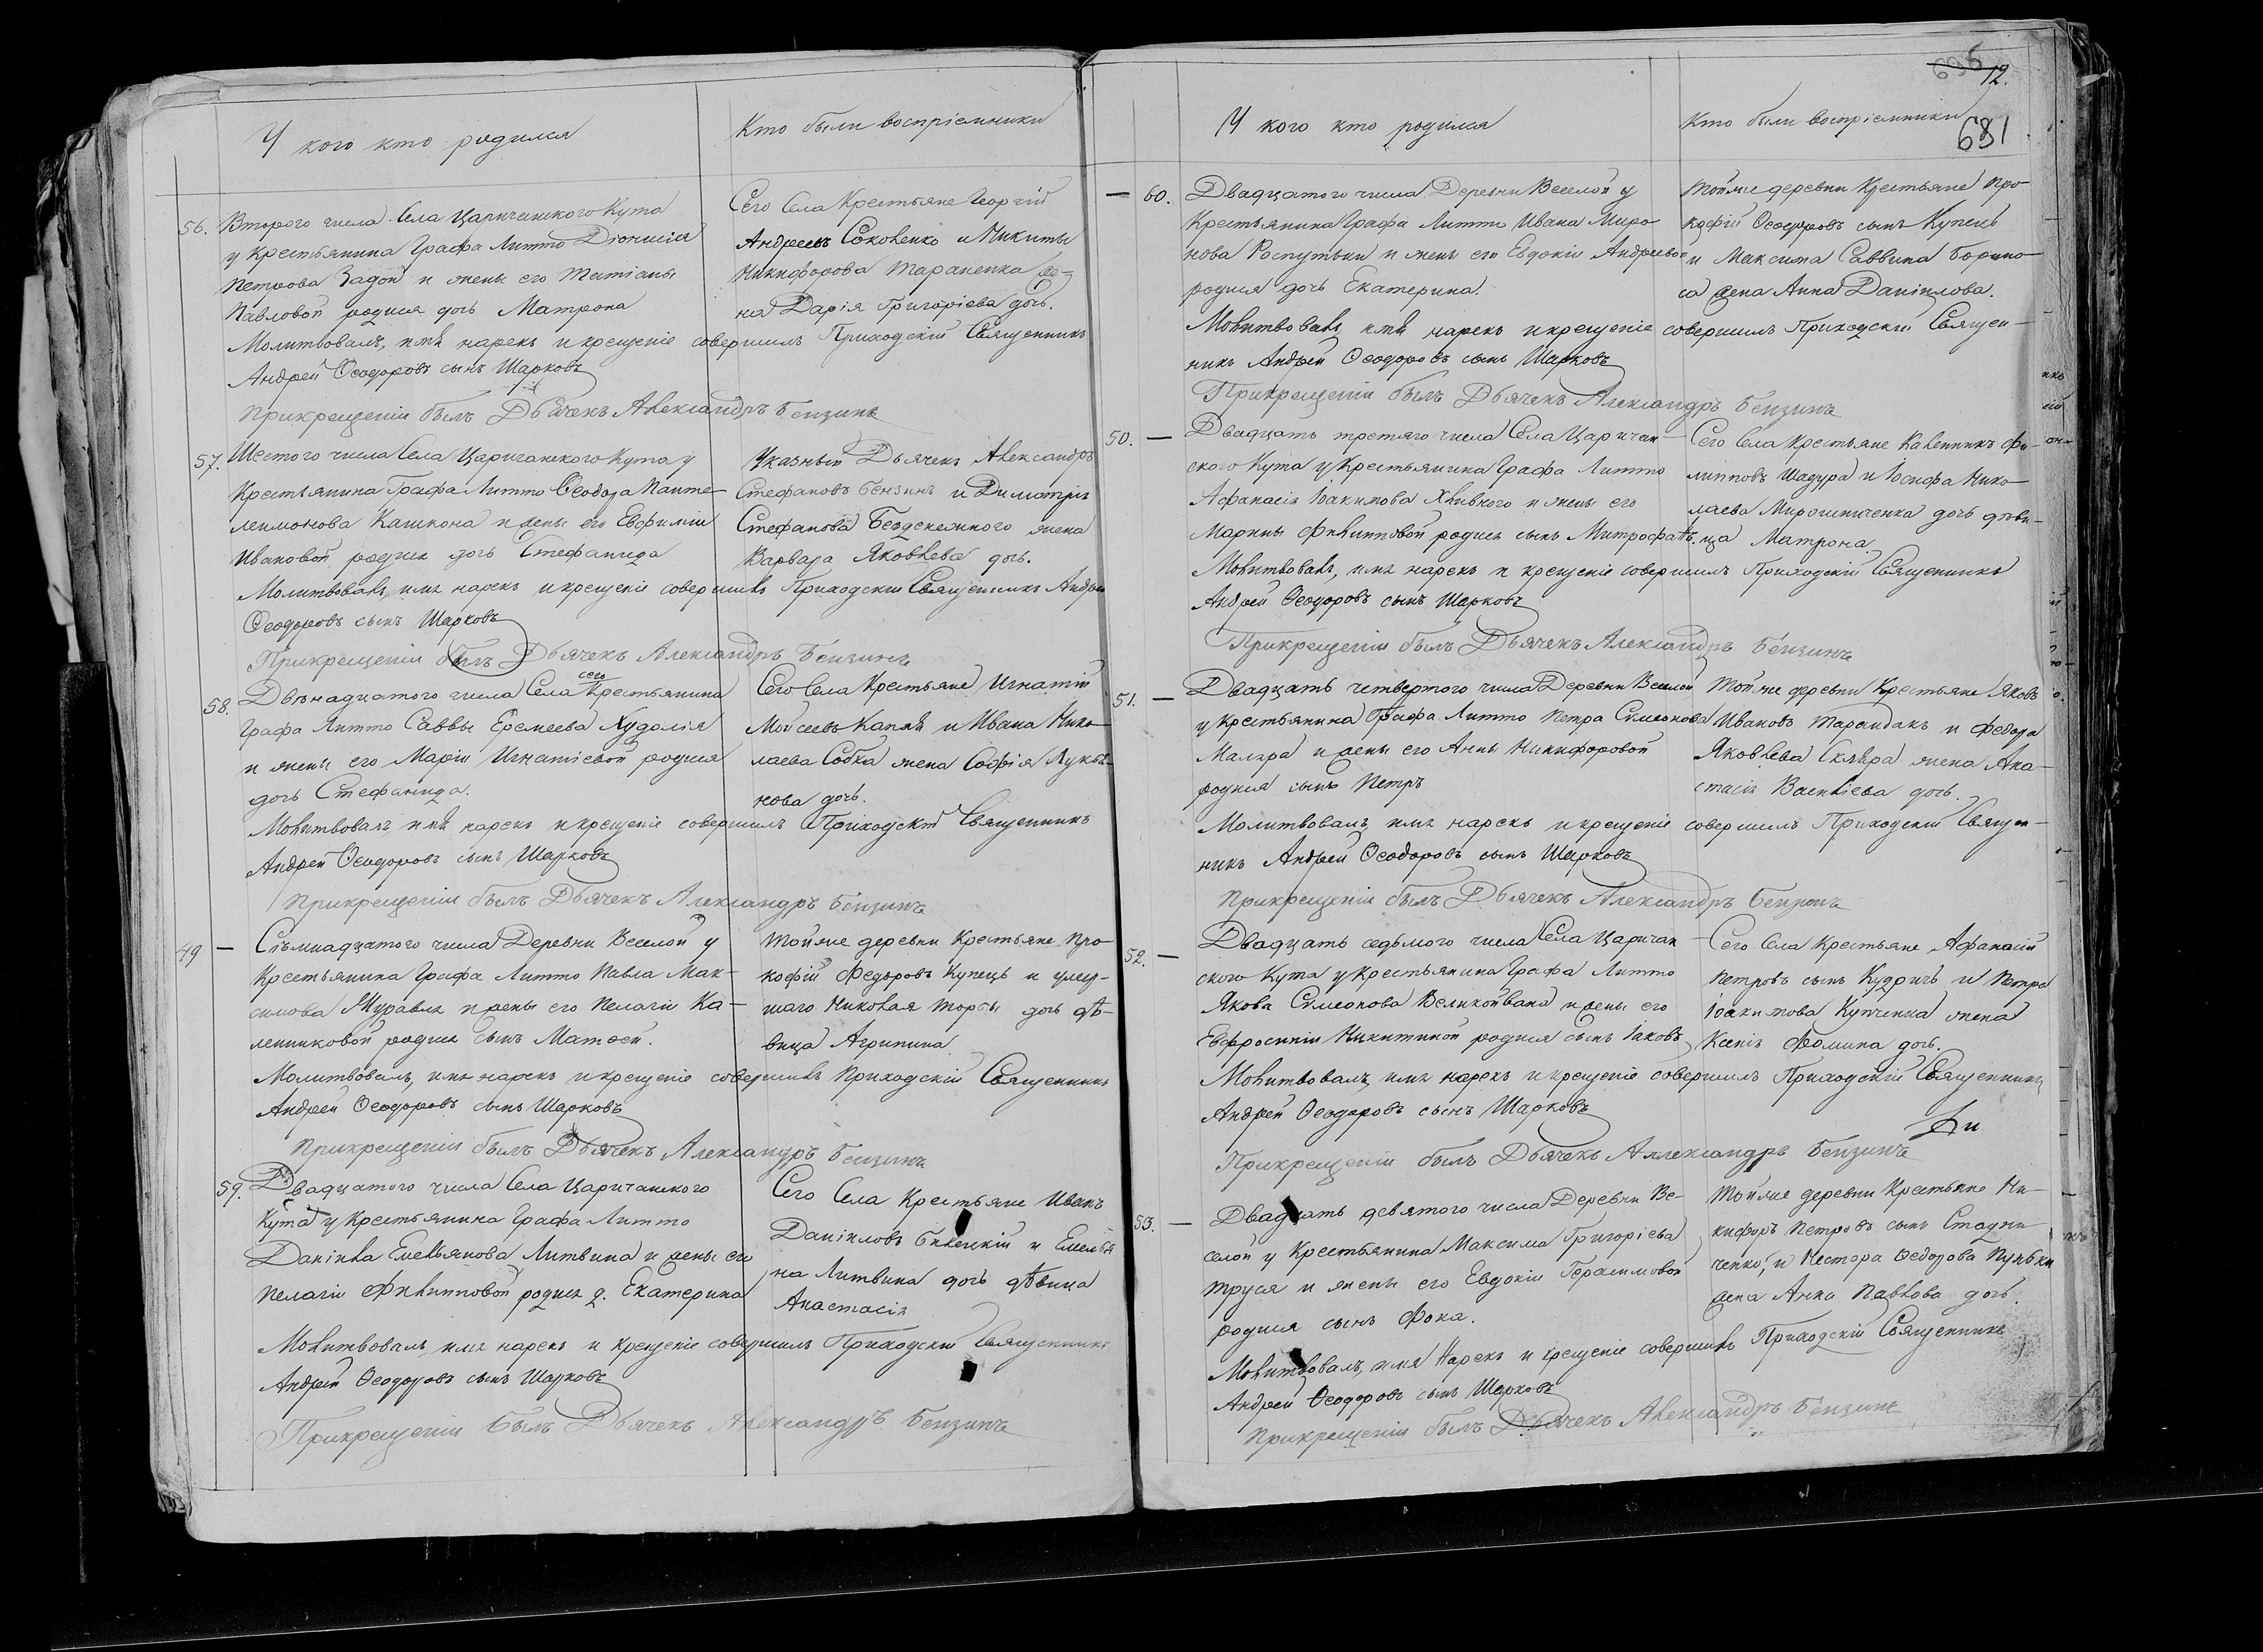 У кого кто родился
Кто были воспріемники
56. Второго числа Села Царичанского Кута
у Крестьянина Графа Литто Діонисія
Петрова Задои и жены его Татіаны
Павловой родися дочь Матрона
Сего Села Крестьяне Георгій
Андреевъ Соковенко и Никиты
Никифорова Тараненка же-
на Дарія Григорієва дочь.
Молитвовалъ, имя нарекъ и крещеніе совершилъ Приходскій Священникъ
Андрей Ѳеодоровъ сынъ Шарковъ
Прикрещеніи былъ Дьячекъ Александръ Бензинъ
57. Шестого числа Села Царичанского Кута у
Крестьянина Графа Литто Ѳеодора Панте-
леимонова Кашкона и жены его Евфиміи
Ивановой родися дочь Стефанида
Указный Дьячекъ Александръ
Стефановъ Бензинъ и Димитрія
Стефанова Безденежного жена
Варвара Яковлева дочь.
Молитвовалъ, имя нарекъ и крещеніе совершилъ Приходскій Священникъ Андрей
Ѳеодоровъ сынъ Шарковъ
Прикрещеніи былъ Дьячекъ Александръ Бензинъ
58. Двѣнадцатого числа Села сего Крестьянина
Графа Литто Саввы Еремеева Худолія
и жены его Маріи Игнатіевой родися
дочь Стефанида.
Сего Села Крестьяне Игнатій
Мойсеевъ Капля и Ивана Нико-
лаева Собка жена Софія Лукья-
нова дочь.
Молитвовалъ имя нарекъ и крещеніе совершилъ Приходскій Священникъ
Андрей Ѳеодоровъ сынъ Шарковъ
Прикрещеніи былъ Дьячекъ Александръ Бензинъ
49 — Сѣмнадцатого числа Деревни Веселой у
Крестьянина Графа Литто Павла Мак-
симова Журавля и жены его Пелагіи Ка-
лениковой родися сынъ Матѳей.
Тойже деревни Крестьяне Про-
кофій Федоровъ Купецъ и умер-
шаго Николая Торбы дочь дѣ-
вица Агрипина
Молитвовалъ, имя нарекъ и крещеніе совершилъ Приходскій Священникъ
Андрей Ѳеодоровъ сынъ Шарковъ
Прикрещеніи былъ Дьячекъ Александръ Бензинъ
59. Двадцатого числа Села Царичанского
Кута у Крестьянина Графа Литто
Даніила Емельянова Литвина и жены его
Пелагіи Филипповой родися д. Екатерина
Сего Села Крестьяне Иванъ
Даніиловъ Билецкій и Емелья-
на Литвина дочь дѣвица
Анастасія
Молитвовалъ, имя нарекъ и крещеніе совершилъ Приходскій Священникъ
Андрей Ѳеодоровъ сынъ Шарковъ
Прикрещеніи былъ Дьячекъ Александръ Бензинъ
696
12.
681
У кого кто родился
Кто были воспріемники
— 60. Двадцатого числа Деревни Веселой у
Крестьянина Графа Литто Ивана Миро-
нова Роспутьки и жены его Евдокіи Андреевой
родися дочь Екатерина.
Тойже деревни Крестьяне Про-
кофій Ѳеодоровъ сынъ Купецъ
и Максима Саввина Борино-
са жена Анна Даніилова.
Молитвовалъ имя нарекъ и крещеніе совершилъ Приходскій Священ-
никъ Андрей Ѳеодоровъ сынъ Шарковъ
Прикрещеніи былъ Дьячекъ Александръ Бензинъ
50. — Двадцать третяго числа Села Царичан-
ского Кута у Крестьянина Графа Литто
Афанасія Іоакимова Хливного и жены его
Марины Филипповой родися сынъ Митрофанъ.
Сего Села Крестьяне Каленикъ Фи-
липповъ Шадура и Іосифа Нико-
лаева Мирошниченка дочь дѣви-
ца Матрона.
Молитвовалъ, имя нарекъ и крещеніе совершилъ Приходскій Священникъ
Андрей Ѳеодоровъ сынъ Шарковъ
Прикрещеніи былъ Дьячекъ Александръ Бензинъ
51. — Двадцать четвертого числа Деревни Веселой
у Крестьянина Графа Литто Петра Симеонова
Маляра и жены его Анны Никифоровой
родися сынъ Петръ
Тойже деревни Крестьяне Яковъ
Ивановъ Тарандакъ и Федора
Яковлева Скляра жена Ана-
стасія Василіева дочь.
Молитвовалъ, имя нарекъ и крещеніе совершилъ Приходскій Священ-
никъ Андрей Ѳеодоровъ сынъ Шарковъ
Прикрещеніи былъ Дьячекъ Александръ Бензинъ
52. — Двадцать седьмого числа Села Царичан-
ского Кута у Крестьянина Графа Литто
Якова Симеонова Великоивана и жены его
Евфросиніи Никитиной родися сынъ Іаковъ
Сего Села Крестьяне Афанасій
Петровъ сынъ Кудричъ и Петра
Іоакимова Купченка жена
Ксенія Фомина дочь.
Молитвовалъ, имя нарекъ и крещеніе совершилъ Приходскій Священникъ
Андрей Ѳеодоровъ сынъ Шарковъ
Прикрещеніи былъ Дьячекъ Аллександръ Бензинъ
53. — Двадцать девятого числа Деревни Ве-
селой у Крестьянина Максима Григоріева
Труся и жены его Евдокіи Герасимовой
родися сынъ Фока.
Тойже деревни Крестьяне Ни-
кифоръ Петровъ сынъ Стадни-
ченко, и Нестора Ѳедорова Пульки
жена Анна Павлова дочь.
Молитвовалъ, имя нарекъ и крещеніе совершилъ Приходскій Священникъ
Андрей Ѳеодоровъ сынъ Шарковъ
Прикрещеніи былъ Дьячекъ Александръ Бензинъ